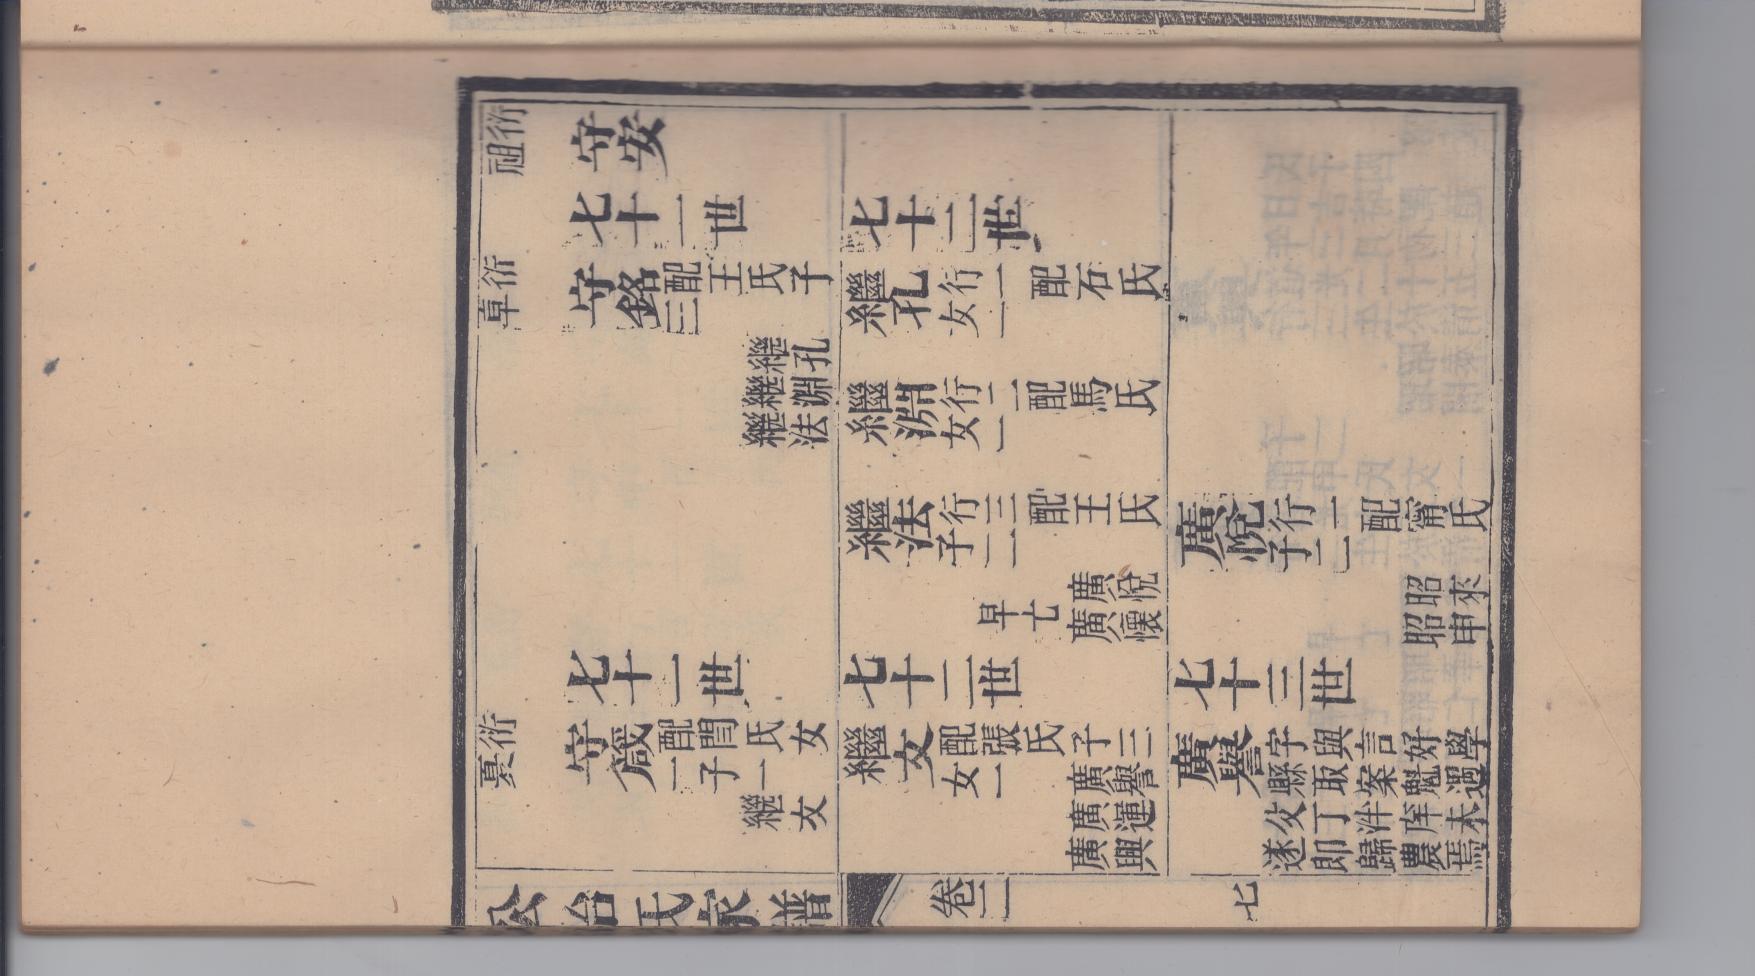 衍祖
守安
七十一世
七十二世
衍章
守銘
配王氏子
三
繼孔
繼淵
繼法
繼孔
行一 配石氏
女一
繼淵
行二 配馬氏
女一
繼法
行三 配王氏
子二
廣悅
廣懷
早亡
廣悅
行一 配甯氏
子二
昭來
昭申
七十一世
七十二世
七十三世
衍夏
守箴
配閆氏女
二子一
繼文
繼文
配張氏子三
女一
廣譽
廣運
廣興
廣譽
字與言好學
縣取案魁遇
父丁泮庠未
遂即歸農焉
公冶氏家譜
卷二
七